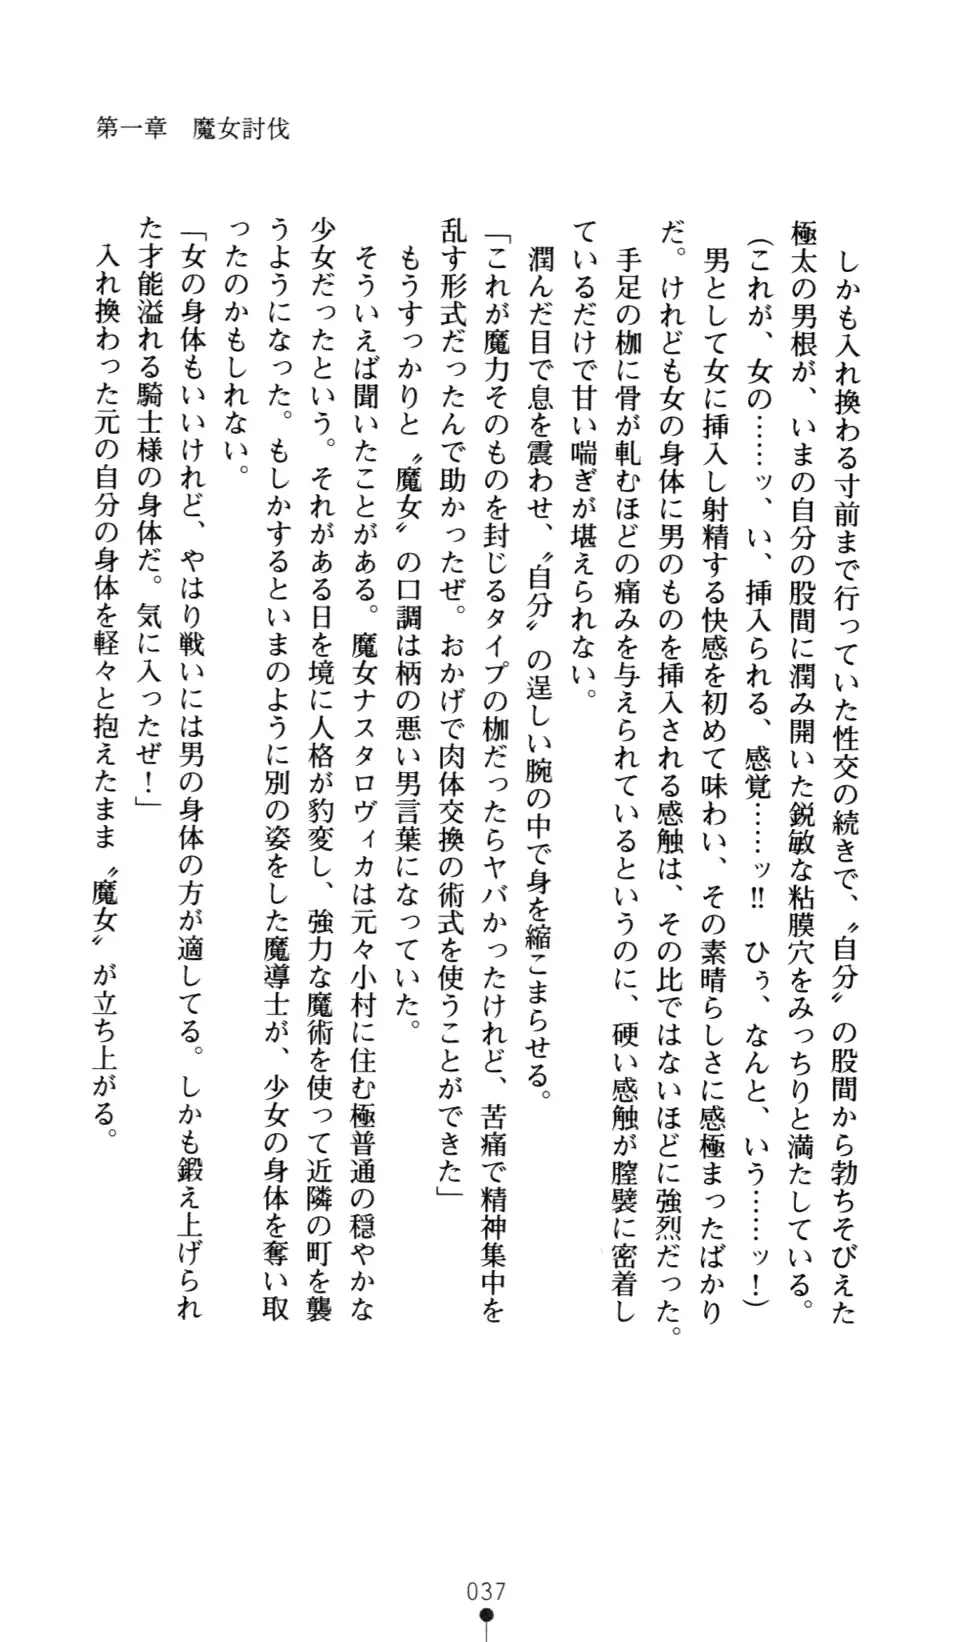 第一章　魔女討伐
しかも入れ換わる寸前まで行っていた性交の続きで、〝自分〟の股間から勃ちそびえた
極太の男根が、いまの自分の股間に潤み開いた鋭敏な粘膜穴をみっちりと満たしている。
(これが、女の……ッ、い、挿入られる、感覚……ッ!!　ひぅ、なんと、いう……ッ！)
男として女に挿入し射精する快感を初めて味わい、その素晴らしさに感極まったばかり
だ。けれども女の身体に男のものを挿入される感触は、その比ではないほどに強烈だった。
手足の枷に骨が軋むほどの痛みを与えられているというのに、硬い感触が膣襞に密着し
ているだけで甘い喘ぎが堪えられない。
潤んだ目で息を震わせ、〝自分〟の逞しい腕の中で身を縮こまらせる。
「これが魔力そのものを封じるタイプの枷だったらヤバかったけれど、苦痛で精神集中を
乱す形式だったんで助かったぜ。おかげで肉体交換の術式を使うことができた」
もうすっかりと〝魔女〟の口調は柄の悪い男言葉になっていた。
そういえば聞いたことがある。魔女ナスタロヴィカは元々小村に住む極普通の穏やかな
少女だったという。それがある日を境に人格が豹変し、強力な魔術を使って近隣の町を襲
うようになった。もしかするといまのように別の姿をした魔導士が、少女の身体を奪い取
ったのかもしれない。
「女の身体もいいけれど、やはり戦いには男の身体の方が適してる。しかも鍛え上げられ
た才能溢れる騎士様の身体だ。気に入ったぜ！」
入れ換わった元の自分の身体を軽々と抱えたまま〝魔女〟が立ち上がる。
037